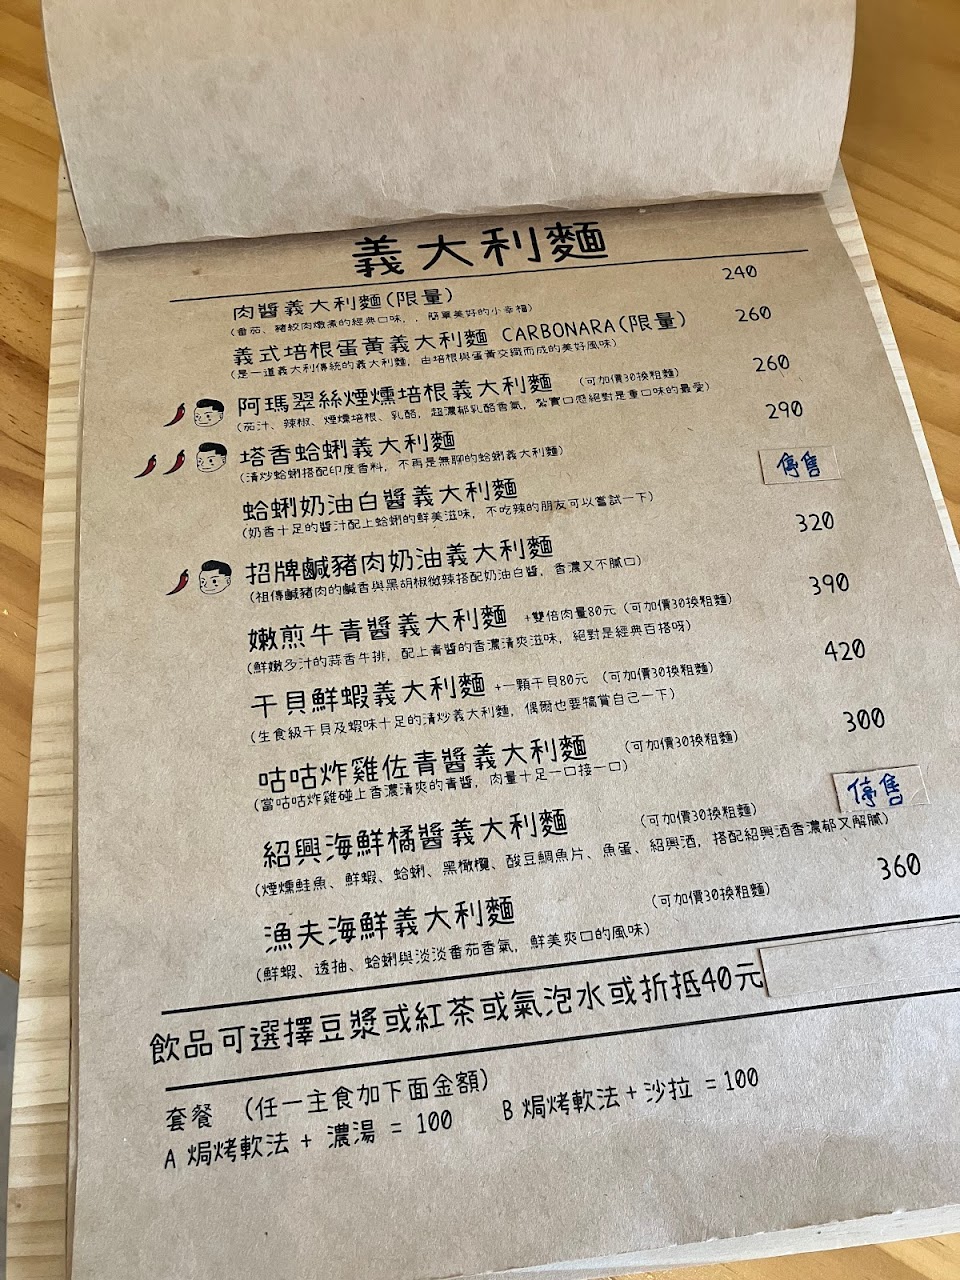 義大利麵
肉醬義大利麵(限量) 240
(番茄、豬絞肉燉煮的經典口味,,簡單美好的小幸福)
義式培根蛋黃義大利麵 CARBONARA(限量) 260
(是一道義大利傳統的義大利麵,由培根與蛋黃交織而成的美好風味)
阿瑪翠絲煙燻培根義大利麵 (可加價30換粗麵) 260
(茄汁、辣椒、煙燻培根、乳酪,超濃郁乳酪香氣,紮實口感絕對是重口味的最愛)
塔香蛤蜊義大利麵 290
(清炒蛤蜊搭配印度香料,不再是無聊的蛤蜊義大利麵)
蛤蜊奶油白醬義大利麵 停售
(奶香十足的醬汁配上蛤蜊的鮮美滋味,不吃辣的朋友可以嘗試一下)
招牌鹹豬肉奶油義大利麵 320
(祖傳鹹豬肉的鹹香與黑胡椒微辣搭配奶油白醬,香濃又不膩口)
嫩煎牛青醬義大利麵 +雙倍肉量80元 (可加價30換粗麵) 390
(鮮嫩多汁的蒜香牛排,配上青醬的香濃清爽滋味,絕對是經典百搭呀)
干貝鮮蝦義大利麵 +一顆干貝80元 (可加價30換粗麵) 420
(生食級干貝及蝦味十足的清炒義大利麵,偶爾也要犒賞自己一下)
咕咕炸雞佐青醬義大利麵 (可加價30換粗麵) 300
(當咕咕炸雞碰上香濃清爽的青醬,肉量十足一口接一口)
紹興海鮮橘醬義大利麵 (可加價30換粗麵) 停售
(煙燻鮭魚、鮮蝦、蛤蜊、黑橄欖、酸豆鯛魚片、魚蛋、紹興酒,搭配紹興酒香濃郁又解膩)
漁夫海鮮義大利麵 (可加價30換粗麵) 360
(鮮蝦、透抽、蛤蜊與淡淡番茄香氣,鮮美爽口的風味)
飲品可選擇豆漿或紅茶或氣泡水或折抵40元
套餐 (任一主食加下面金額)
A 焗烤軟法 + 濃湯 = 100 B 焗烤軟法+沙拉 =100